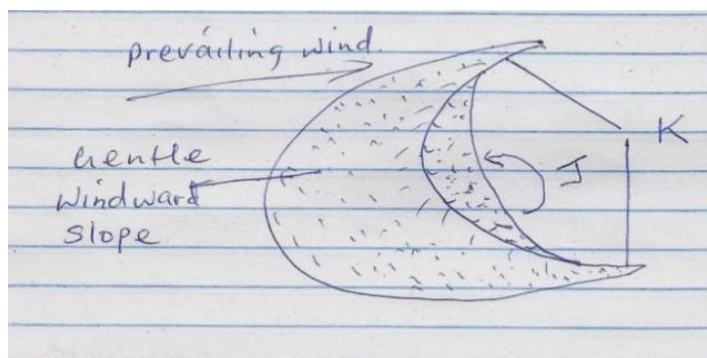 prevailing wind.
K
J
Gentle
Windward
slope